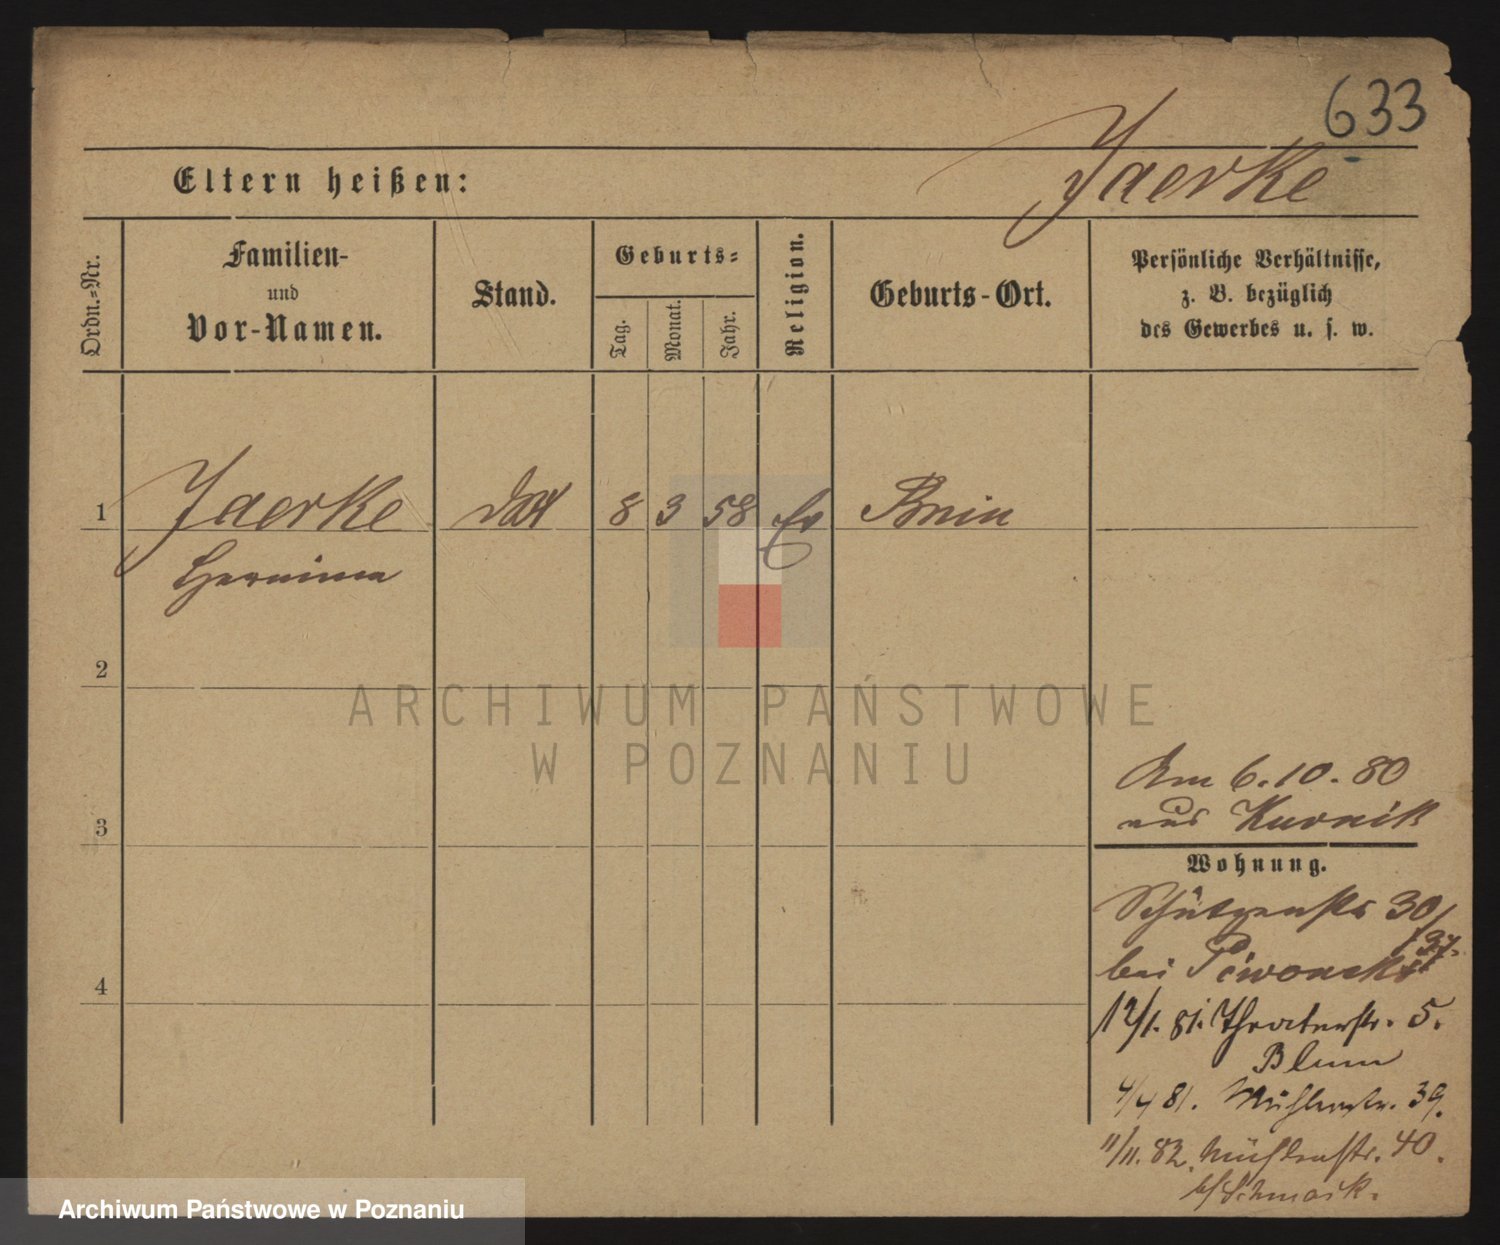 633
Jaerke
Eltern heißen:
Ordn.-Nr.
Familien-
und
Vor-Namen.
Stand.
Geburts-
Tag.
Monat.
Jahr.
Religion.
Geburts-Ort.
Persönliche Verhältnisse,
z. B. bezüglich
des Gewerbes u. s. w.
1 Jaerke 8 3 58 Ev Bnin
Hermina
2
3
4
Am 6.10.80
aus Kurnik
Wohnung.
Schützenstr 30/
31.
bei Piwonski
12/1. 81. Theaterstr. 5.
Blum
4/4 81. Mühlenstr. 39.
11/11. 82. Mühlenstr. 40.
b/ Schmaik.
ARCHIWUM PAŃSTWOWE
W POZNANIU
Archiwum Państwowe w Poznaniu